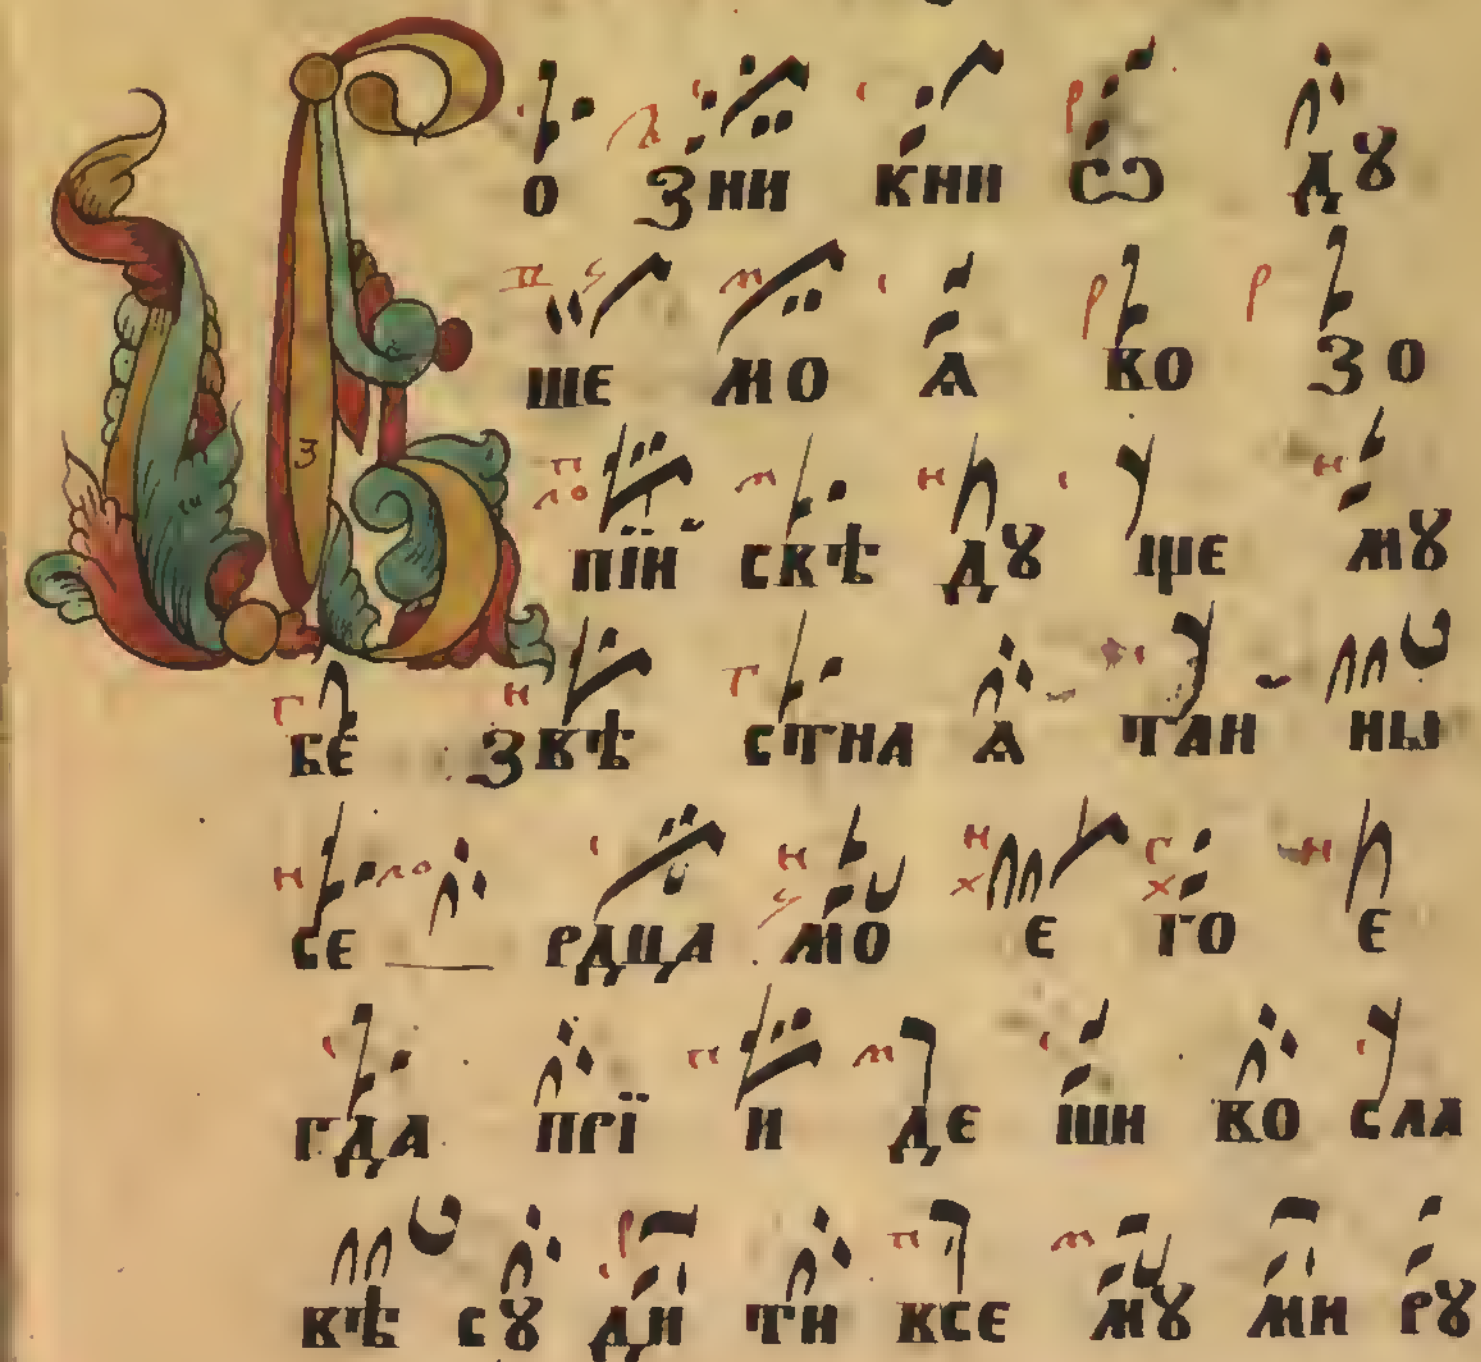 В о зни кни ѡ дꙋ
ше мо ѧ ко зо
пїи скѣ дꙋ ще мꙋ
бе звѣ стна ѧ тай ны
се рдца мо е го е
гда прї и де ши во сла
вѣ сꙋ ди ти все мꙋ ми рꙋ